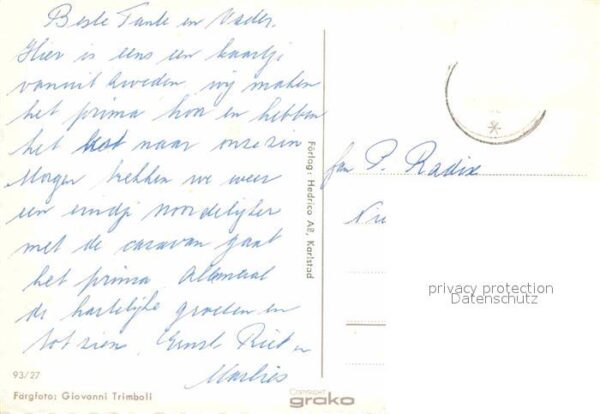 Beste Tante en Vader.
Hier is eens een kaartje
vanuit Zweden wij maken
het prima hoor en hebben
het best naar onze zin
Morgen trekken we weer
een eindje noordelijker
met de caravan gaat
het prima Allemaal
de hartelijke groeten en
tot ziens. Ernst Riet en
Marlies
93/27
Färgfoto: Giovanni Trimboli
Förlag: Hedrico AB, Karlstad
Copyright
grako
fam P. Radix
privacy protection
Datenschutz